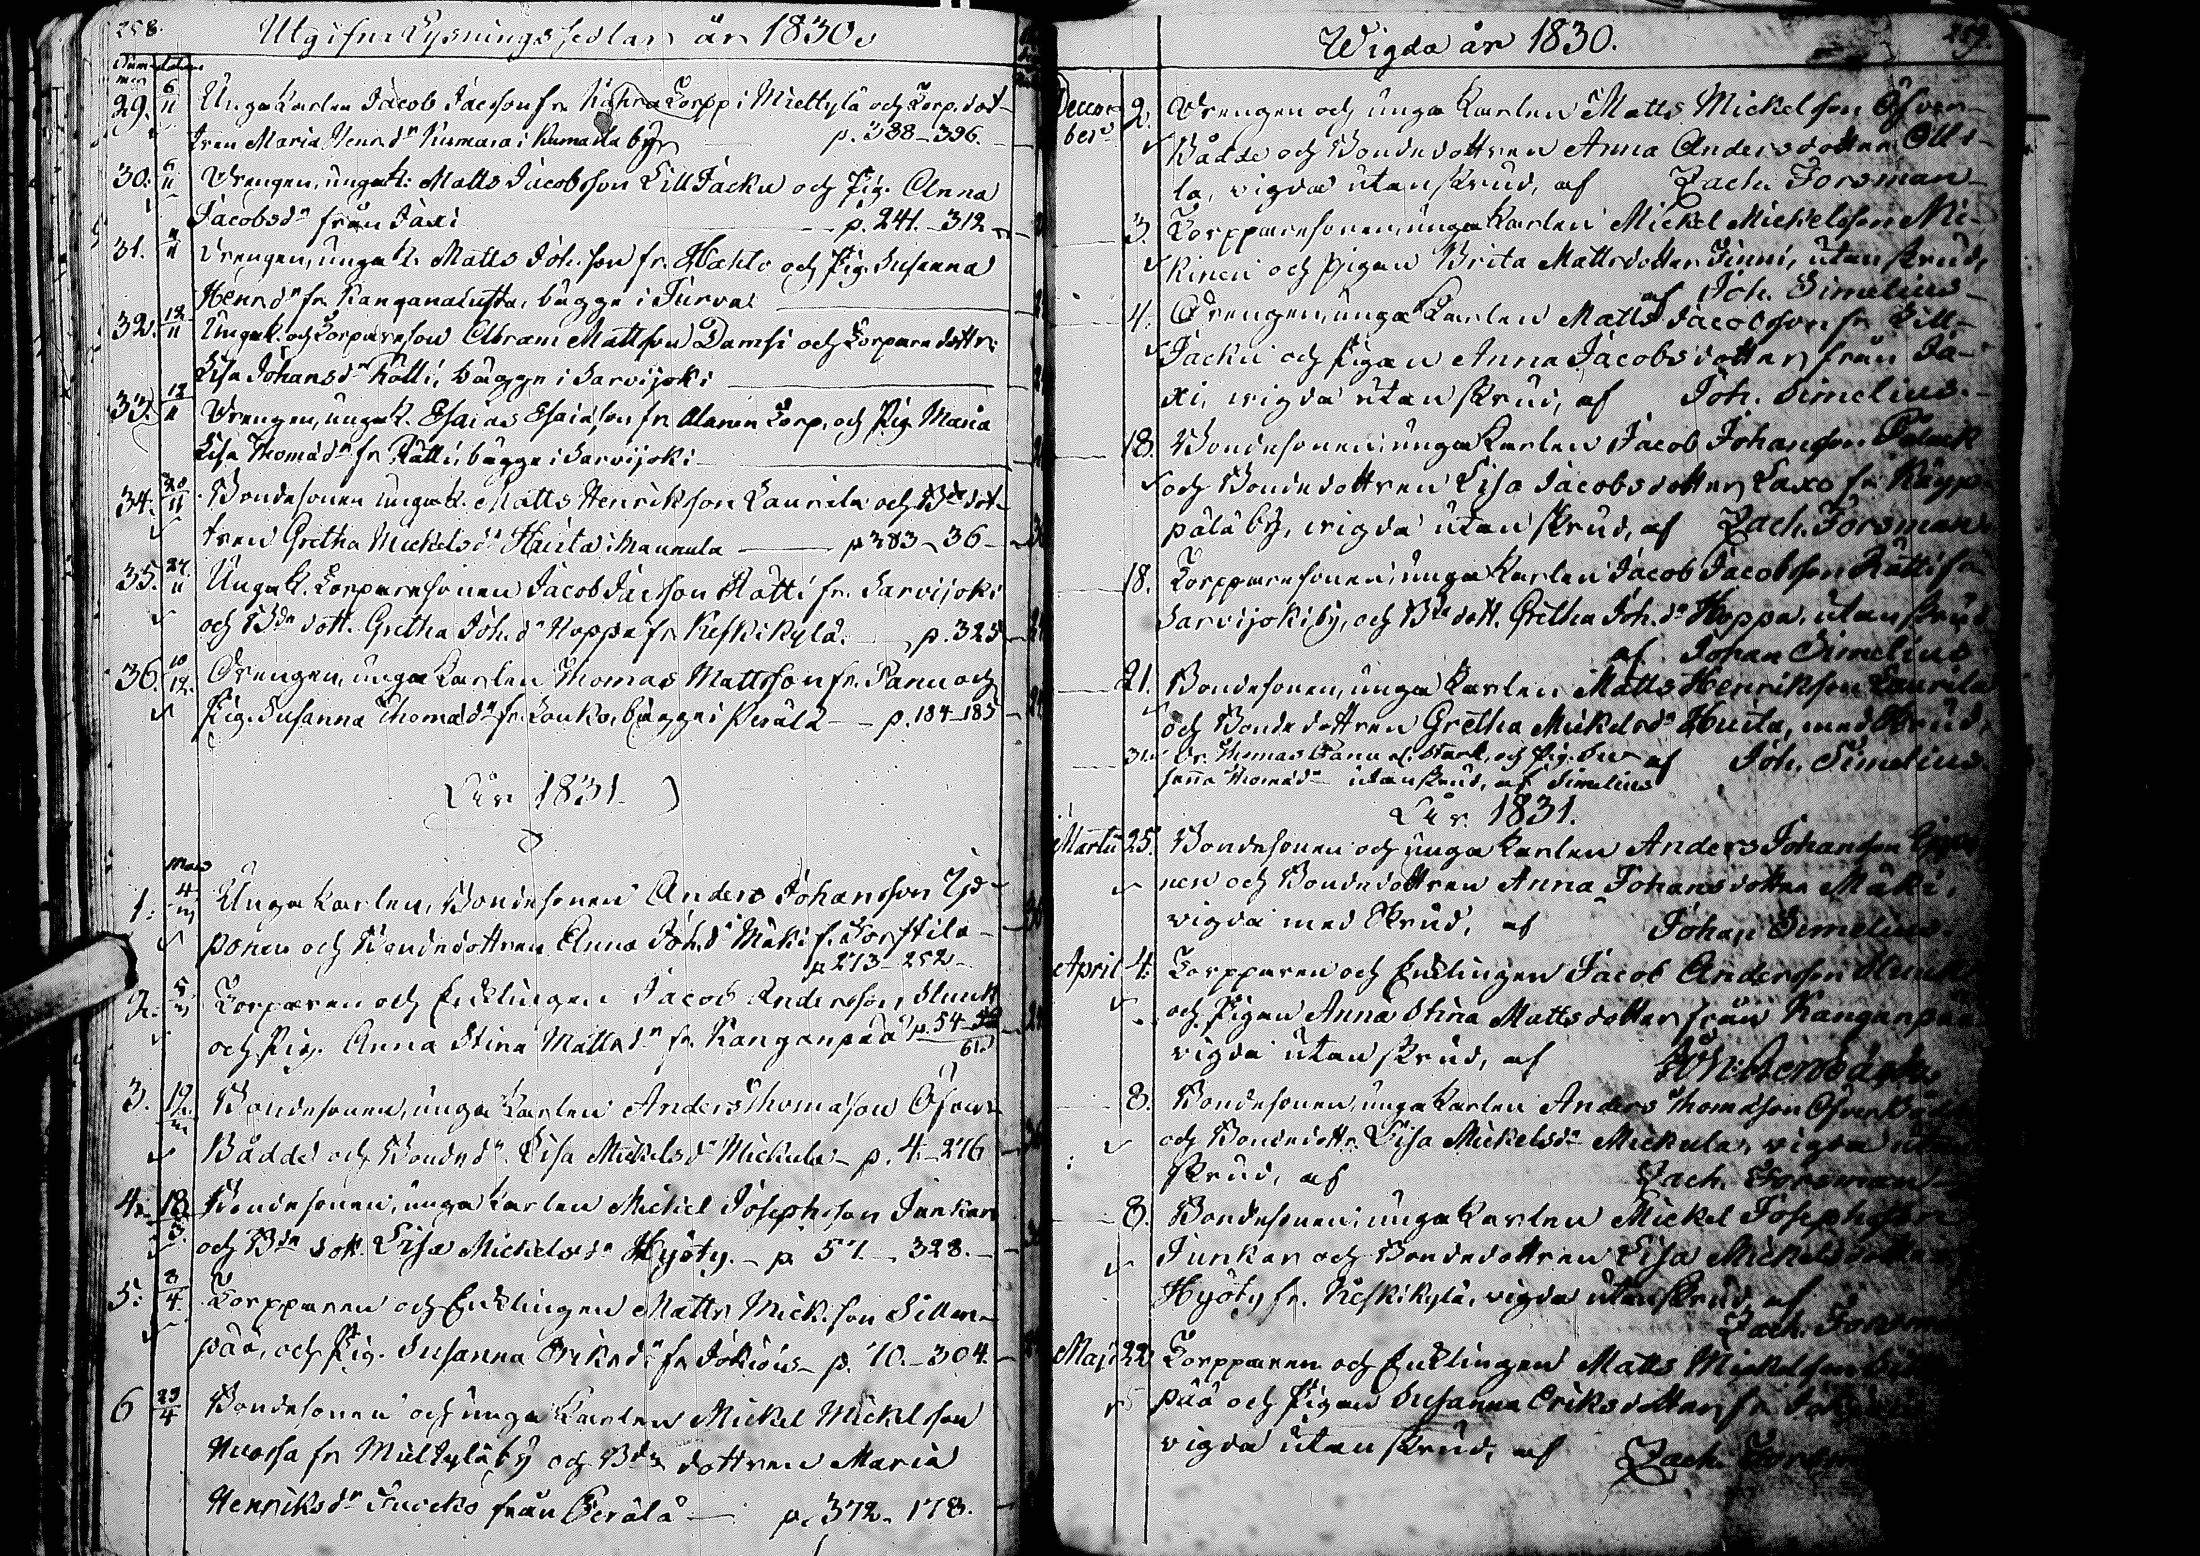 258.
Utgifna Lysningssedlar år 1830.
29. 6/11 Unga Karlen Jacob Jacsson fr. Torp i Miettylä och Torp. dot-
tren Maria Henr.dr Kumara i Kumada by p. 388-396.
30. 6/11 Drengen, unga k. Matts Jacobsson LillJacku och Pig. Anna
Jacobsdr från Jaxi p. 241.-312
31. Drengen, unga k. Matts Joh.son fr. Hahto och Pig. Susanna
Henrdr fr. Kanganalusta, bägge i Turva.
32. 12/11 Unga k. och Torpareson Abram Mattsson Damsi och Torparedottr.
Lisa Johansdr Rätti, bägge i Sarvijoki
33. 12/11 Drengen, unga k. Esaias Esaiasson fr. Alanen Torp, och Pig. Maria
Lisa Thomædr fr. Rätti, bägge i Sarvijoki
34. 20/11 Bondesonen unga k. Matts Henriksson Laurila och Bde dot-
tren Gretha Mickelsdr Huita i Mannula p 383-36
35. 27/11 Unga k. Torparesonen Jacob Jacsson Rätti fr. Sarvijoki
och Bde dott. Gretha Joh.dr Hoppa fr. Keskikylä. p. 325
36. 10/12. Drengen, unga Karlen Thomas Mattsson fr. Panu och
Pig. Susanna Thomædr fr. Louko, bägge i Perälä p. 184-185
År 1831.
1. 4/3 Unga Karlen, Bondesonen Anders Johansson Yp-
ponen och Bondedottren Anna Joh.dr Mäki f. Torstila
p 273-252
2. 5/3 Torparen och Enklingen Jacob Andersson Slunk
och Pig. Anna Stina Mattsdr fr. Kanganpää p. 54
61.
3. 12. Bondesonen, unga Karlen Anders Thomasson Öfver
Bådde och Bonded. Lisa Mickelsdr Mickula p. 4.-276
4. 18/3. Bondesonen, unga Karlen Mickel Josephsson Junkar
och Bde dott. Lisa Mickelsdr Hyöty. p. 57.-328.
5. 3/4. Torpparen och Enklingen Matts Mick.son Sillan-
pää, och Pig. Susanna Eriksdr fr. Jokiois p. 70.-304.
6 23/4 Bondesonen och unga Karlen Mickel Mickelson
Huossa fr. Mieltylä by och Bde dottren Maria
Henriksdr från Perälä p. 372. 178.
Wigda år 1830.
259.
December 2. Drengen och unga Karlen Matts Mickelson Öfver-
Bådde och Bondedottren Anna Andersdotter Olli-
la, vigda utan skrud, af Zach. Forsman
3. Torpparesonen, unga Karlen Mickel Mickelsson Mi-
kinen och pigan Brita Mattsdotter Finni, utan skrud,
af Joh. Simelius
4. Drengen, unga Karlen Matts Jacobsson fr. Lill-
Jacku och Pigan Anna Jacobsdotter från Ja-
xi, vigda utan skrud, af Joh. Simelius.
18. Bondesonen, unga Karlen Jacob Johansson Palack
och Bondedottren Lisa Jacobsdotter Laxo fr. Käyp-
pälä by, vigda utan skrud, af Zach. Forsman
18. Torpparesonen, unga Karlen Jacob Jacobsson Rätti fr.
Sarvijoki by, och Bde dott. Gretha Joh.dr Hoppa, utan skrud
af Johan Simelius
21. Bondesonen, unga Karlen Matts Henrikson Laurila
och Bondedottren Gretha Mickelsdr Huita, med Skrud,
af Joh. Simelius.
31. Dr. Thomas Panu och Pig. Su-
sanna Thomædr utan skrud, af Simelius
År 1831.
Martii 25. Bondesonen och unga Karlen Anders Johanson Yppo
nen och Bondedottren Anna Johansdotter Mäki,
vigda med Skrud, af Johan Simelius
April 4. Torpparen och Enklingen Jacob Andersson Slunk
och Pigan Anna Stina Mattsdotter från Kanganpää
vigda utan skrud, af
8. Bondesonen, unga Karlen Anders Thomasson Öfver Bådde
och Bondedottr. Lisa Mickelsdr Mickula, vigda utan
skrud, af Zach. Forsman
8. Bondesonen, unga Karlen Mickel Josephsson
Junkar och Bondedottren Lisa Mickelsdotter
Hyöty fr. Keskikylä, vigda utan skrud af
Zach. Forsman
Maji 22 Torpparen och Enklingen Matts Mickelson
pää och Pigan Susanna Eriksdotter fr.
vigda utan skrud, af Zach.